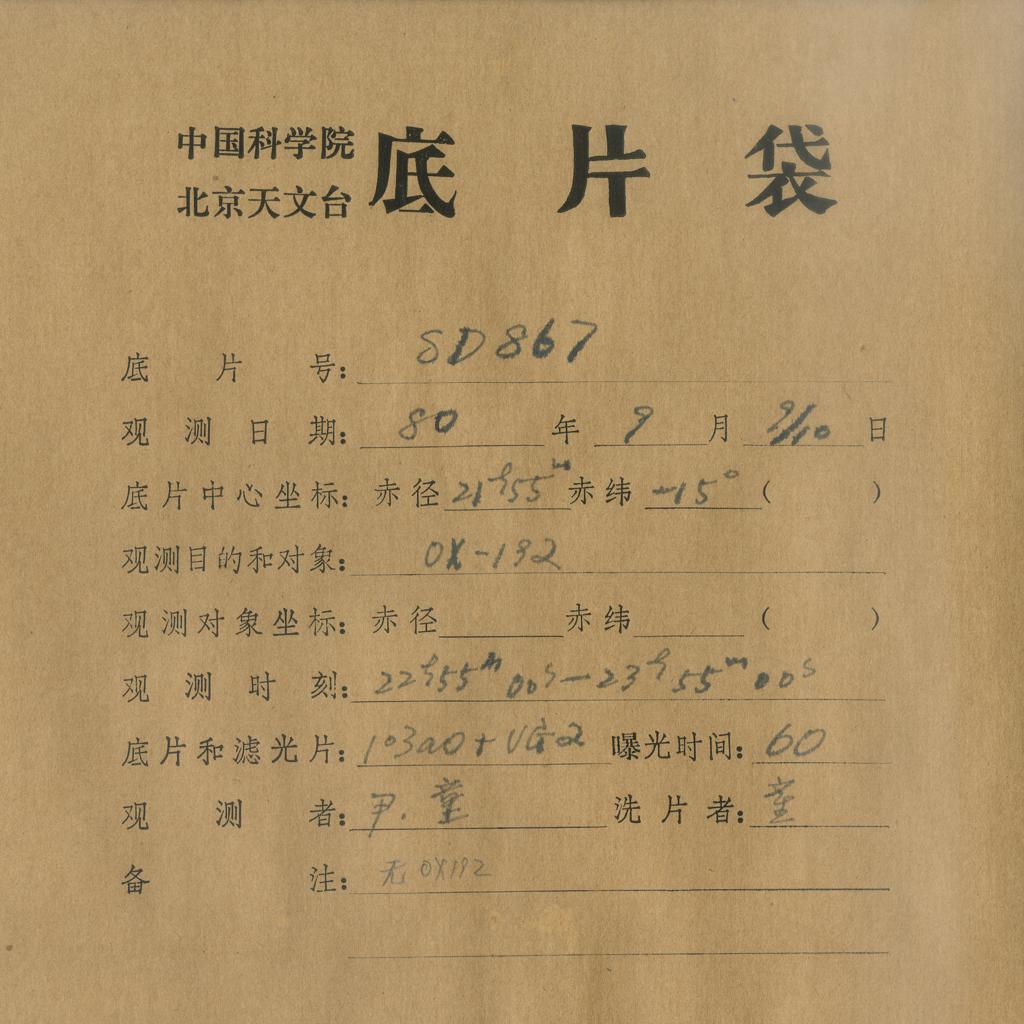 中国科学院
北京天文台
底片袋
底片号: SD867
观测日期: 80年9月9/10日
底片中心坐标: 赤径21h55m赤纬-15°( )
观测目的和对象: OX-192
观测对象坐标: 赤径 赤纬 ( )
观测时刻: 22h55m00s-23h55m00s
底片和滤光片: 103aO+ 曝光时间: 60
观测者: 尹.董 洗片者: 董
备注: 无OX192